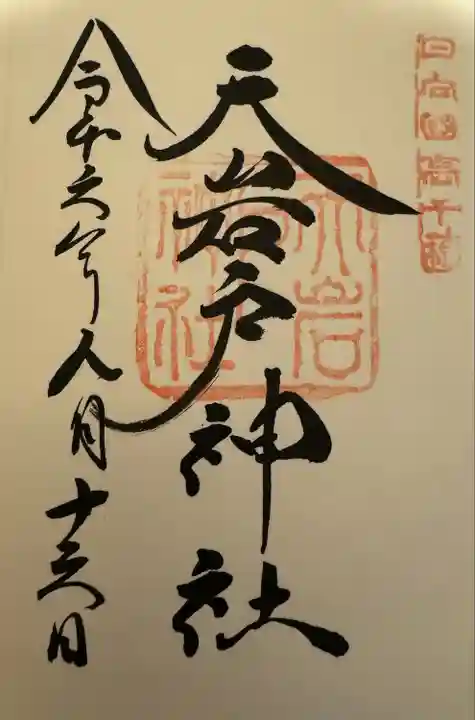 日向国高千穂
天岩戸神社
天岩戸神社
令和六年八月十六日